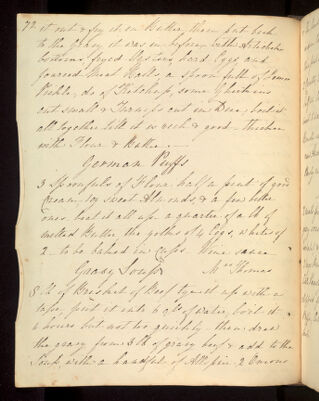 72 it out & fry it in Butter, then put back
to the Gravy it was in before, with Artichoke
bottoms fryed Oysters, hard Eggs and
forced Meat Balls, a spoon full of Lemon
Pickle, do of Ketchup some Gherkins
cut small &
all together till it is rich & good - thicken
with Flour & Butter
German Puffs
3 Spoonfuls of Flour half a pint of good
Cream, sweet Almonds, & a few bitter
ones beat it all up a quarter of a lb of
melted Butter the yolks of 4 Eggs, whites of
2 - to be baked in Cups. Wine sauce
Gravy Soup Mrs Thomas
8 lb of Brisket of Beef tye it up with a
tape, put it into 6 Qts of Water, boil it
4 hours but not too quickly - then draw
the gravy from 3 lb of gravy beef & add to the
Soup, with a handful of Allspice 2 Onions